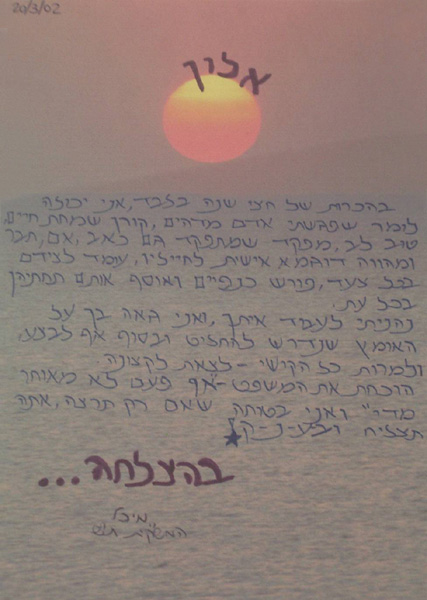 20/3/02
אליך
בהכרות של חצי שנה בלבד, אני יכולה
לומר שפגשתי אדם מדהים, קורן שמחת חיים,
טוב לב, מפקד שמתפקד גם כאב, אם, חבר
ומהווה דוגמא אישית לחייליו, עומד לצידם
בכל צעד, פורש כנפיים ואוסף אותם תחתיהן
בכל עת.
נהניתי לעבוד איתך, ואני גאה בך על
האומץ שנדרש להחליט ובסוף אף לבצע,
ולמרות כל הקושי - לצאת לקצונה.
הוכחת את המשפט - "אף פעם לא מאוחר
מדי" ואני בטוחה שאם רק תרצה, אתה
תצליח ובגי-נ-ק
בהצלחה...
מיכל